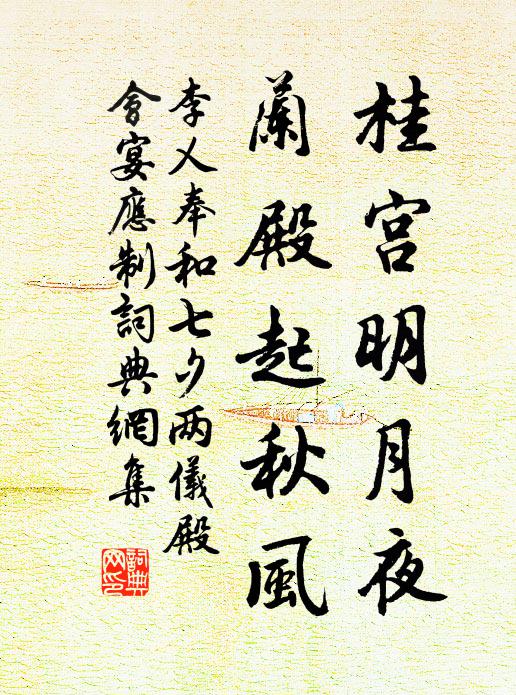 桂宮明月夜
蘭殿起秋風
李乂奉和七夕兩儀殿
會宴應制詞典網集
詞典網印